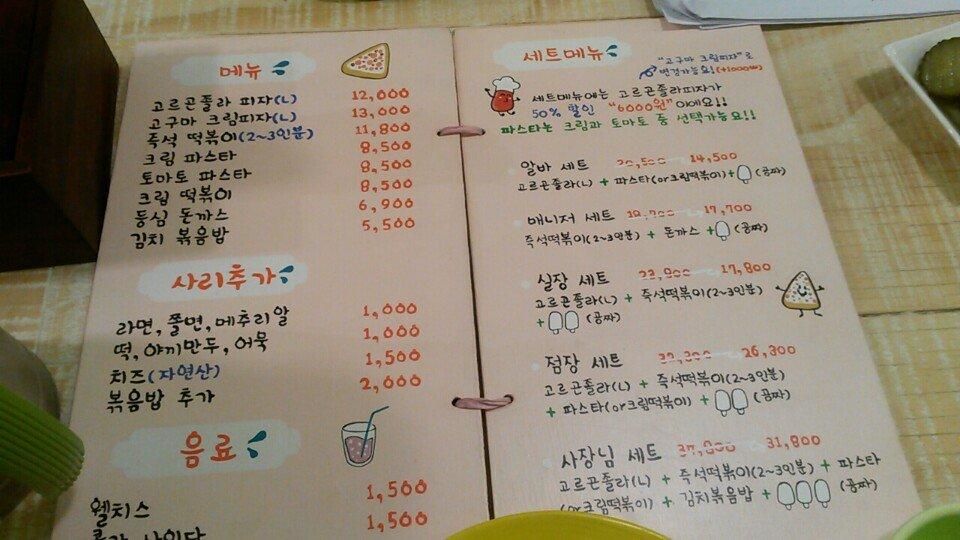 메뉴
고르곤졸라 피자(L) 12,000
고구마 크림피자(L) 13,000
즉석 떡볶이(2~3인분) 11,800
크림 파스타 8,500
토마토 파스타 8,500
크림 떡볶이 8,500
등심 돈까스 6,900
김치 볶음밥 5,500
사리추가
라면, 쫄면, 메추리알 1,000
떡, 야끼만두, 어묵 1,000
치즈(자연산) 1,500
볶음밥 추가 2,000
음료
웰치스 1,500
콜라 사이다 1,500
세트메뉴
"고구마 크림피자"로
변경가능요!(+1000₩)
세트메뉴에는 고르곤졸라피자가
50% 할인 "6000원"이에요!!
파스타는 크림과 토마토 중 선택가능요!!
알바 세트 20,500 14,500
고르곤졸라(L) + 파스타(or크림떡볶이)+ (공짜)
매니저 세트 17,700
즉석떡볶이(2~3인분) + 돈까스 + (공짜)
실장 세트 23,800 17,800
고르곤졸라(L) + 즉석떡볶이(2~3인분)
+ (공짜)
점장 세트 32,300 26,300
고르곤졸라(L) + 즉석떡볶이(2~3인분)
+ 파스타(or크림떡볶이) + (공짜)
사장님 세트 37,800 31,800
고르곤졸라(L) + 즉석떡볶이(2~3인분) + 파스타
(or크림떡볶이) + 김치볶음밥 + (공짜)